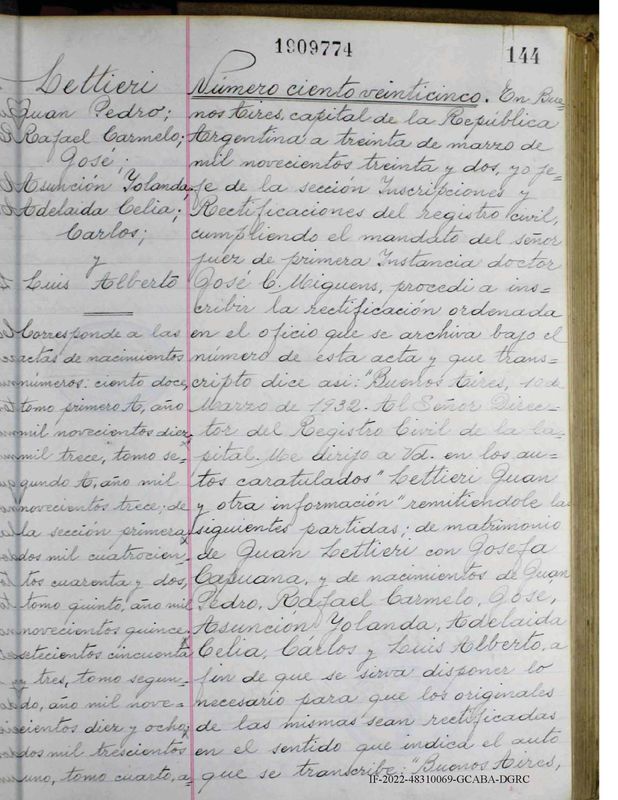 1909774
144
Lettieri
Juan Pedro;
Rafael Carmelo;
José;
Asunción Yolanda;
Adelaida Celia;
Carlos;
y
Luis Alberto
Corresponde a las
actas de nacimientos
números: ciento doce,
tomo primero A, año
mil novecientos diez,
mil trece, tomo se-
gundo A, año mil
novecientos trece; de
la sección primera
dos mil cuatrocien-
tos cuarenta y dos,
tomo quinto, año mil
novecientos quince;
setecientos cincuenta
y tres, tomo segun-
do, año mil nove-
cientos diez y ocho;
dos mil trescientos
uno, tomo cuarto, a-
Número ciento veinticinco. En Bue=
nos Aires, capital de la República
Argentina a treinta de marzo de
mil novecientos treinta y dos, yo je=
fe de la sección Inscripciones y
Rectificaciones del registro civil,
cumpliendo el mandato del señor
juez de primera Instancia doctor
José C. Miguens, procedí a ins=
cribir la rectificación ordenada
en el oficio que se archiva bajo el
número de esta acta y que trans=
cripto dice así: "Buenos Aires, 10 de
Marzo de 1932. Al Señor Direc=
tor del Registro Civil de la Ca=
pital. Me dirijo a Vd. en los au=
tos caratulados "Lettieri Juan
y otra información" remitiendole las
siguientes partidas; de matrimonio
de Juan Lettieri con Josefa
Capuana, y de nacimientos de Juan
Pedro, Rafael Carmelo, José,
Asunción Yolanda, Adelaida
Celia, Carlos y Luis Alberto, a
fin de que se sirva disponer lo
necesario para que los originales
de las mismas sean rectificadas
en el sentido que indica el auto
que se transcribe: "Buenos Aires,
IF-2022-48310069-GCABA-DGRC